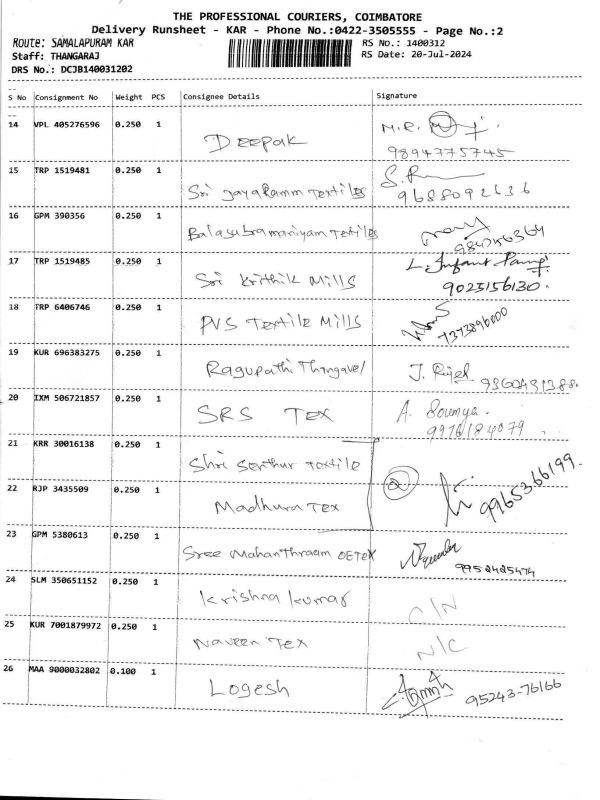 THE PROFESSIONAL COURIERS, COIMBATORE
Delivery Runsheet - KAR - Phone No.:0422-3505555 - Page No.:2
Route: SAMALAPURAM KAR
RS No.: 1400312
Staff: THANGARAJ
RS Date: 20-Jul-2024
DRS No.: DCJB140031202
S No Consignment No Weight PCS Consignee Details Signature
14 VPL 405276596 0.250 1 Deepak 9894775745
15 TRP 1519481 0.250 1 Sri Jayaramm Textiles 9688092636
16 GPM 390356 0.250 1 Balasubramaniyam Textiles 984756364
17 TRP 1519485 0.250 1 Sri Krithik Mills 9025156130.
18 TRP 6406746 0.250 1 PVS Textile Mills 7373896000
19 KUR 696383275 0.250 1 Ragupathi Thangavel
20 IXM 506721857 0.250 1 SRS TEX A. Soumya. 9976184079.
21 KRR 30016138 0.250 1 Shri Senthur Textile
22 RJP 3435509 0.250 1 Madhura Tex 2 9965366199.
23 GPM 5380613 0.250 1 Sree Mahanthraam OETEX 9952425474
24 SLM 350651152 0.250 1 Krishna Kumar
25 KUR 7001879972 0.250 1 Naveen Tex N/C
26 MAA 9000032802 0.100 1 Logesh 95243-76166